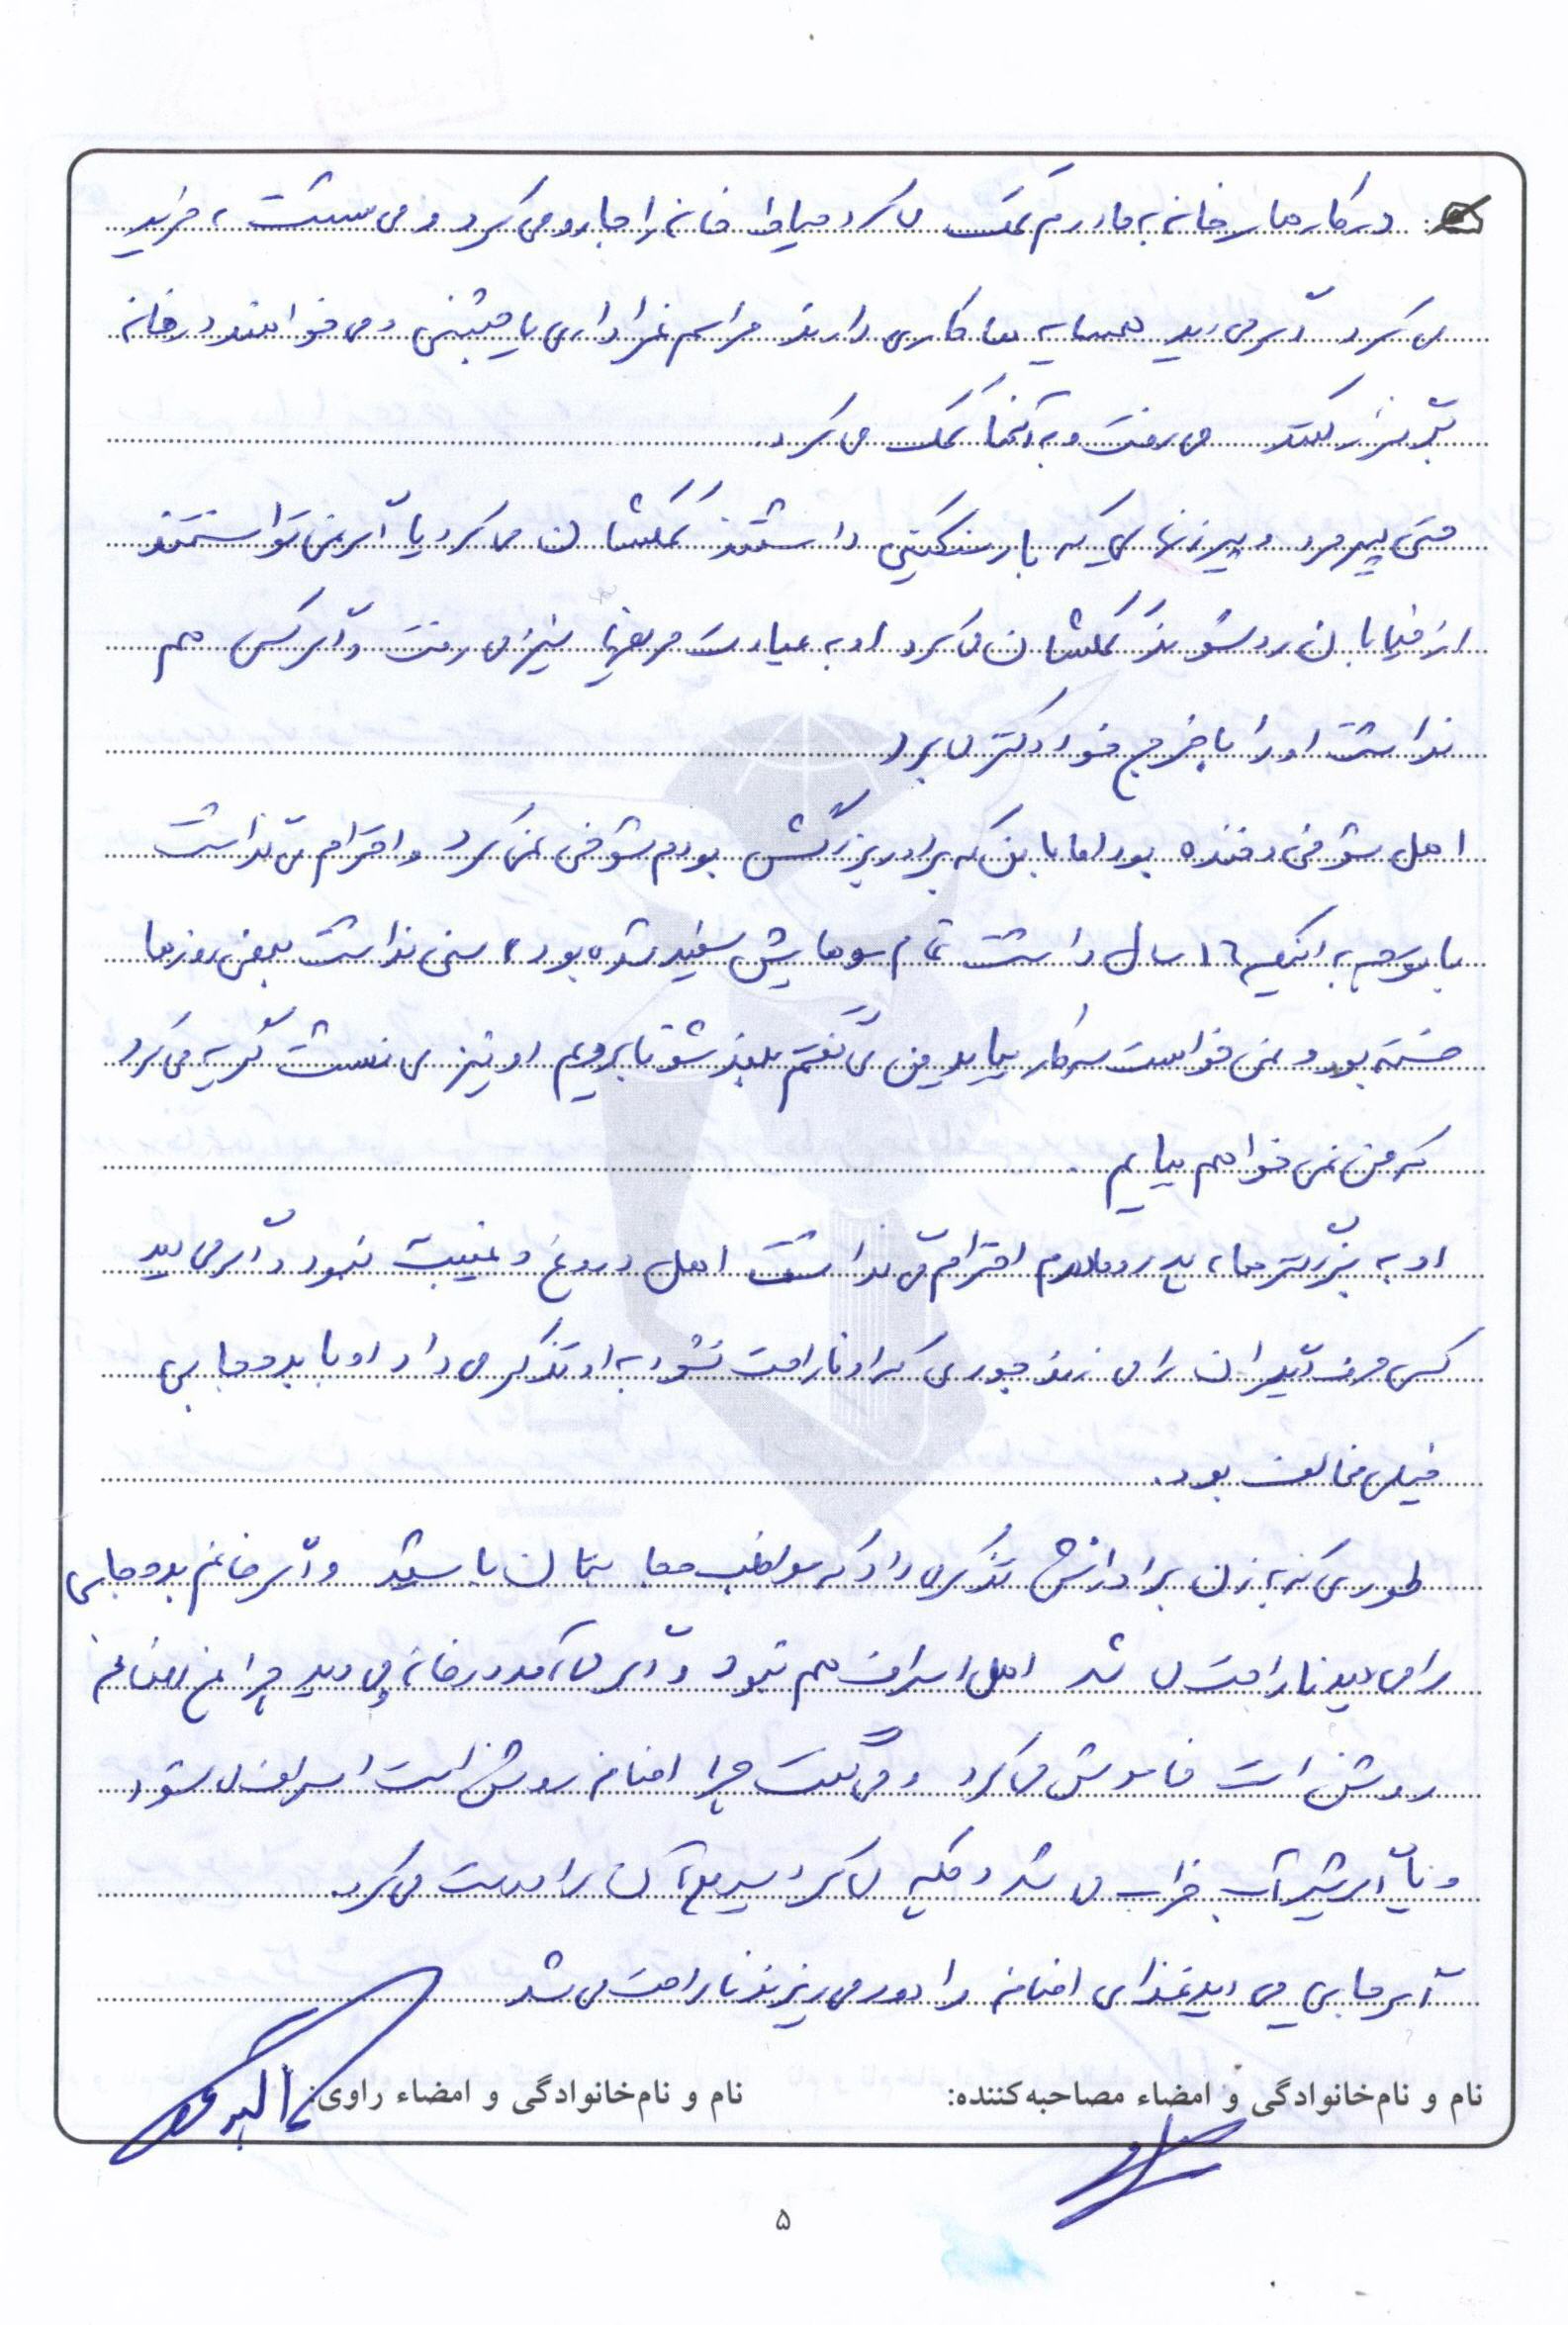 در کارهای خانه به مادرم کمک می کرد حیاط خانه را جارو می کرد و می شست ، خرید
می کرد اگر می دید همسایه ها کاری دارند مراسم عزاداری یا جشنی و می خواهند در خانه
برگزار کنند می رفت و به آنها کمک می کرد.
حتی پیرمرد و پیرزنهایی که بار سنگینی داشتند کمکشان می کرد یا اگر نمی توانستند
از خیابان رد شوند کمکشان می کرد او به عیادت مریضها نیز می رفت و اگر کسی هم
نداشت او را با خرج خود دکتر می برد
اهل شوخی و خنده بود اما با من که برادر بزرگش بودم شوخی نمی کرد و احترام می گذاشت
با توجه به اینکه ۱۶ سال داشت تمام موهایش سفید شده بود، سنی نداشت بعضی روزها
خسته بود و نمی خواست سر کار بیاید من می گفتم بلند شو تا برویم او نیز می نشست گریه می کرد
که من نمی خواهم بیایم.
او به بزرگترها، پدر و مادرم احترام می گذاشت اهل دروغ و غیبت نبود و اگر می دید
کسی حرف دیگران را می زند جوری که او ناراحت نشود به او تذکر می داد او با بدحجابی
خیلی مخالف بود.
طوری که به زن برادرانش تذکر می داد که مواظب حجابتان باشید و اگر خانم بدحجابی
را می دید ناراحت می شد اهل اسراف هم نبود و اگر می آمد در خانه می دید چراغ اضافه
روشن است خاموش می کرد و می گفت چرا اضافه روشن است اسراف می شود
و یا اگر شیر آب خراب می شد و چکه می کرد سریع آن را درست می کرد.
اگر جایی می دید غذای اضافه را دور می ریزند ناراحت می شد
نام و نام‌خانوادگی و امضاء مصاحبه‌کننده:
نام و نام‌خانوادگی و امضاء راوی:
۵